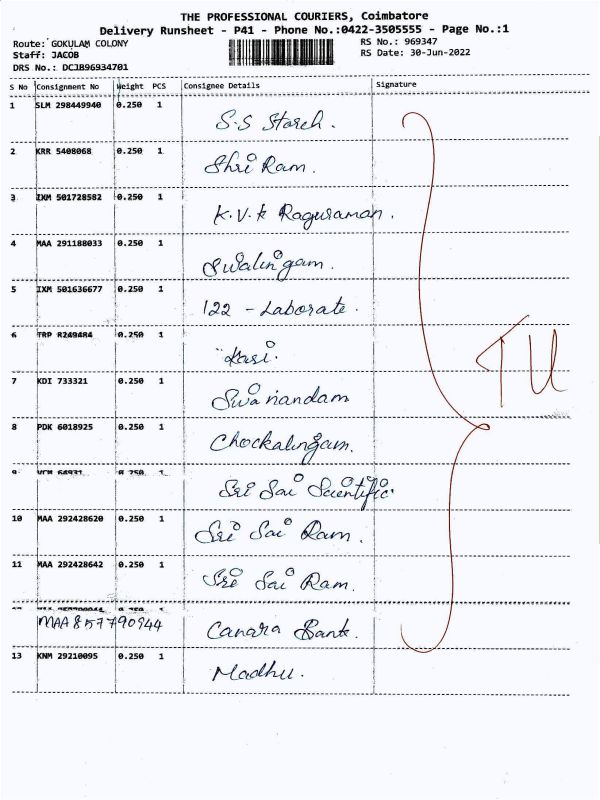 THE PROFESSIONAL COURIERS, Coimbatore
Delivery Runsheet - P41 - Phone No.:0422-3505555 - Page No.:1
Route: GOKULAM COLONY RS No.: 969347
Staff: JACOB RS Date: 30-Jun-2022
DRS No.: DCJB96934701
S No Consignment No Weight PCS Consignee Details Signature
1 SLM 298449940 0.250 1
S.S Storch.
2 KRR 5408068 0.250 1
Shri Ram.
3 IXM 501728582 0.250 1
K.V.K Raguraman.
4 MAA 291188033 0.250 1
Swalingam.
5 IXM 501636677 0.250 1
122 - Laborate.
6 TRP 8249484 0.250 1
Kasi.
7 KDI 733321 0.250 1
8 PDK 6018925 0.250 1
Chockalingam.
9 0.250 1
Sri Sai Scientific.
10 MAA 292428620 0.250 1
Sri Sai Ram.
11 MAA 292428642 0.250 1
Sri Sai Ram.
MAA 857790944
Canara Bank.
13 KNM 29210095 0.250 1
Madhu.